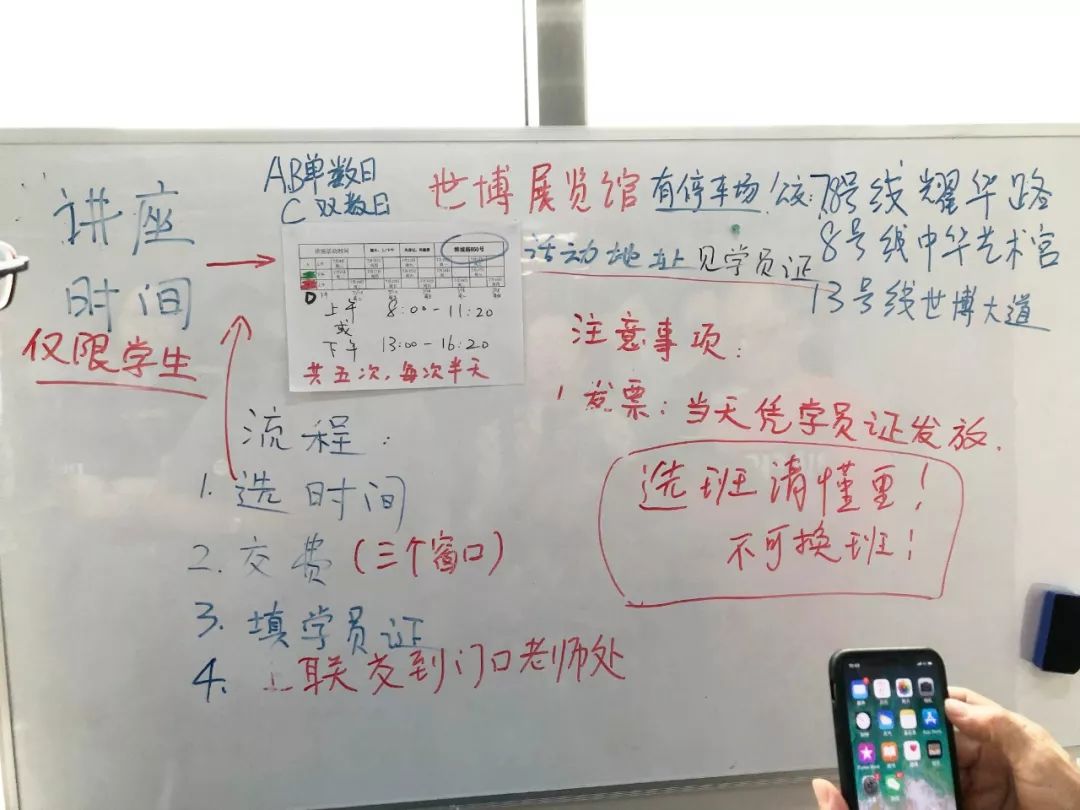 讲座
时间
仅限学生
AB单数日
C双数日
世博展览馆 有停车场
活动地址见学员证
公交:7.8号线耀华路
8号线中华艺术宫
13号线世博大道
D
上午 8:00-11:20
或
下午 13:00-16:20
共五次,每次半天
流程:
1. 选时间
2. 交费(三个窗口)
3. 填学员证
4. 上联交到门口老师处
注意事项:
1 发票:当天凭学员证发放.
选班请懂重!
不可换班!